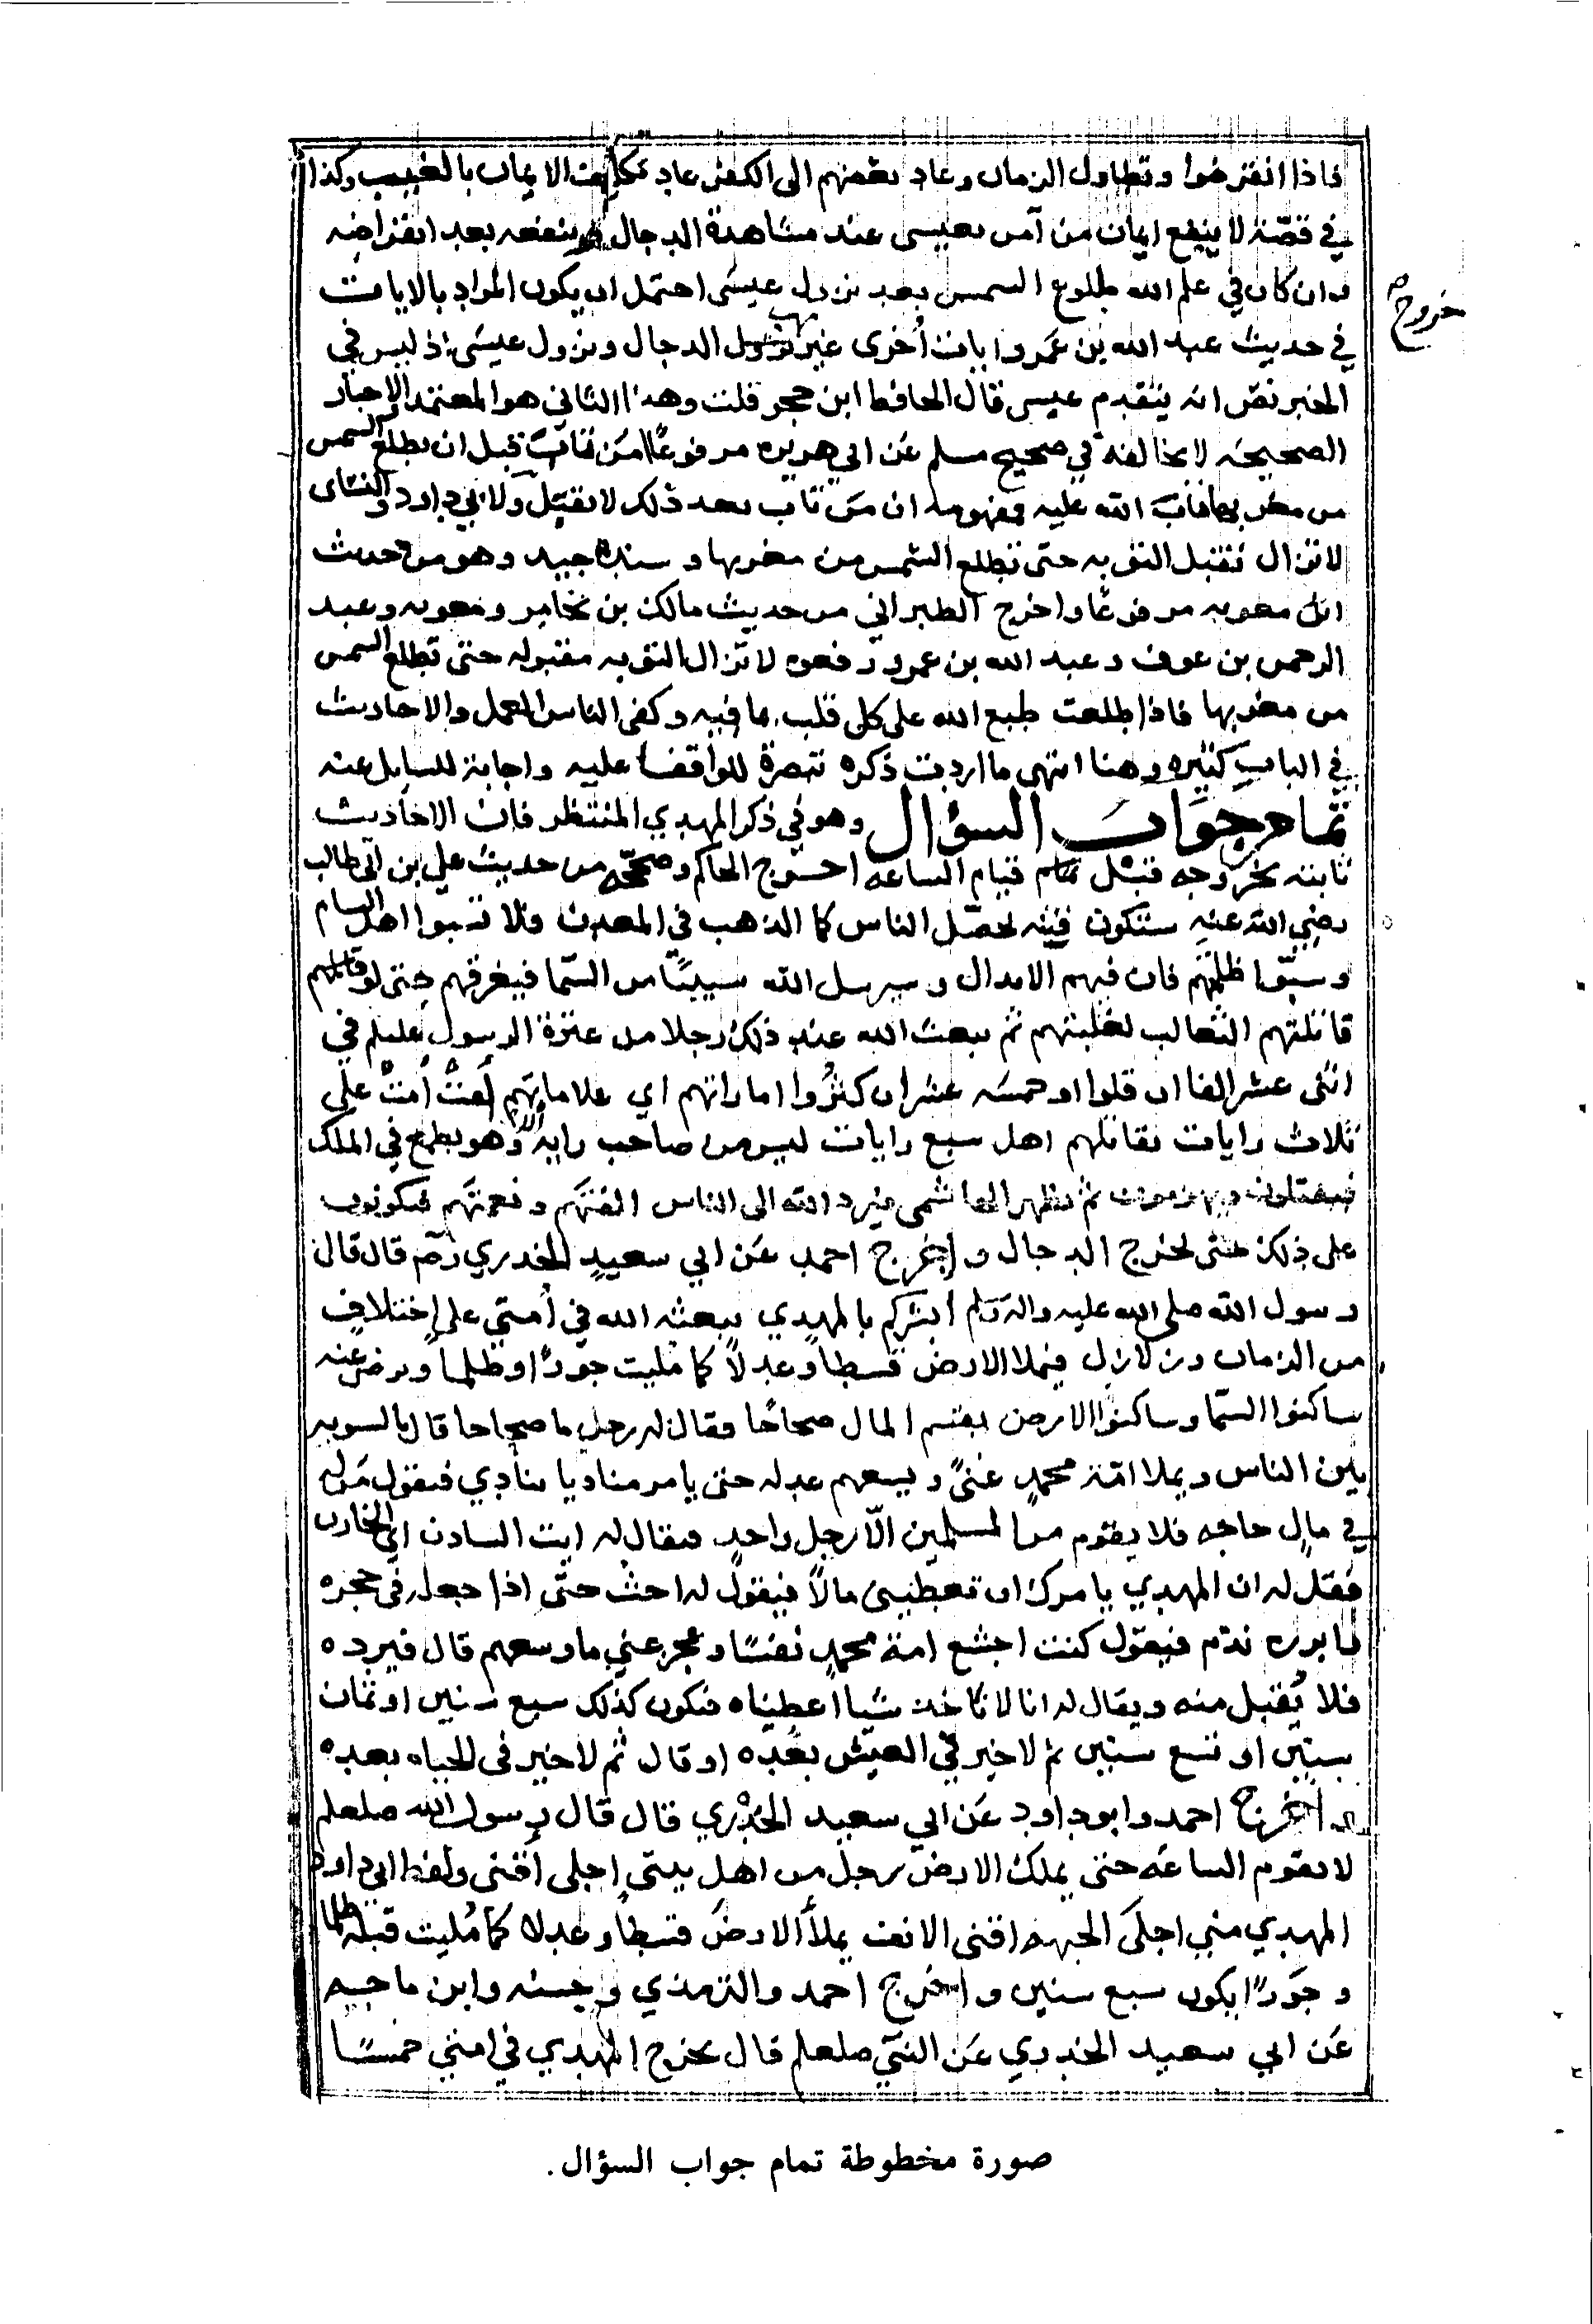 فاذا انقرضوا وتطاول الزمان وعاد بعضهم الى الكفر عاد تكليف الايمان بالغيب وكذا
في قصة لا ينفع ايمان من آمن بعيسى عند مشاهدة الدجال وينفعه بعد انقراضه
وان كان في علم الله طلوع الشمس بعد نزول عيسى احتمل ان يكون المراد بالايات
خروج
في حديث عبد الله بن عمرو ايات أخرى غير الدجال ونزول عيسى اذ ليس في
الخبر نص انه يتقدم عيسى قال الحافظ ابن حجر قلت وهذا الثاني هو المعتمد والاخبار
الصحيحه لا تخالفه في صحيح مسلم عن ابي هريره مرفوعًا من تاب قبل ان تطلع الشمس
من مغربها تاب الله عليه فمفهومه ان من تاب بعد ذلك لا تقبل ولابي داود والنسائى
لا تزال تقبل التوبه حتى تطلع الشمس من مغربها وسنده جيد وهو من حديث
معويه مرفوعًا واخرج الطبراني من حديث مالك بن يخامر ومعويه وعبد
الرحمن بن عوف وعبد الله بن عمرو رفعوه لا تزال التوبه مقبوله حتى تطلع الشمس
من مغربها فاذا طلعت طبع الله على كل قلب بما فيه وكفى الناس العمل والاحاديث
في الباب كثيره وهنا انتهى ما اردت ذكره تبصرة للواقف عليه واجابة للسايل عنه
تمام جواب السؤال وهو في ذكر المهدي المنتظر فان الاحاديث
ثابته بخروجه قبل قيام الساعه اخرج الحاكم وصححه من حديث علي بن ابى طالب
رضي الله عنه ستكون فتنه تحصّل الناس كما الذهب في المعدن فلا تسبوا اهل الشام
وسبّوا ظلمتهم فان فيهم الابدال وسيرسل الله سيبًا من السّما فيغرقهم حتى لو قاتلهم
قاتلتهم الثعالب لغلبتهم ثم يبعث الله عند ذلك رجلا من عترة الرسول في
اثنى عشر الفا ان قلوا او خمسه عشر ان كثروا اماراتهم اي علاماتهم أمت أمت على
ثلاث رايات يقاتلهم اهل سبع رايات ليس من صاحب رايه الا وهو يطمع في الملك
فيقتلون ويهزمون ثم يظهر الهاشمى فيرد الله الى الناس الفتهم ونعمتهم فيكونون
على ذلك حتى يخرج الدجال واخرج احمد عن ابي سعيد الخدري رضي قال قال
رسول الله صلى الله عليه واله وسلم أبشركم بالمهدي يبعثه الله في أمتي على إختلاف
من الزمان وزلازل فيملا الارض قسطا وعدلاً كما مليت جورًا وظلما ويرضى عنه
ساكنوا السّما وساكنوا الارض يقسم المال صحاحًا فقال له رجل ما صحاحا قال بالسويه
بين الناس ويملا امّة محمدٍ غنىً ويسعهم عدله حتى يامر مناديا ينادي فيقول من له
في مالٍ حاجه فلا يقوم من المسلمين الّا رجل واحد فيقال له ايت السادن اي الخازن
فقل له ان المهدي يامرك ان تعطينى مالاً فيقول له احث حتى اذا جعله فى حجره
ندم فيقول كنت اجشع امة محمدٍ نفسًا وعجز عني ما وسعهم قال فيرده
فلا يُقبل منه ويقال له انا لا ناخذ شيا اعطيناه فيكون كذلك سبع سنين او ثمان
سنين او تسع سنين ثم لا خير في العيش بعده او قال ثم لا خير فى الحياه بعده
واخرج احمد وابو داود عن ابي سعيد الخدري قال قال رسول الله صلعلم
لا تقوم الساعه حتى يملك الارض رجل من اهل بيتي إجلى أقنى ولفظ ابي داود
المهدي مني اجلى الجبهه اقنى الانف يملأ الارض قسطا وعدلا كما مُليت قبله ظلما
وجَورًا يكون سبع سنين واخرج احمد والترمذي وحسنه وابن ماجه
عَن ابي سعيد الخدري عَن النبّي صلعلم قال يخرج المهدي في امتي خمسًا
صورة مخطوطة تمام جواب السؤال.